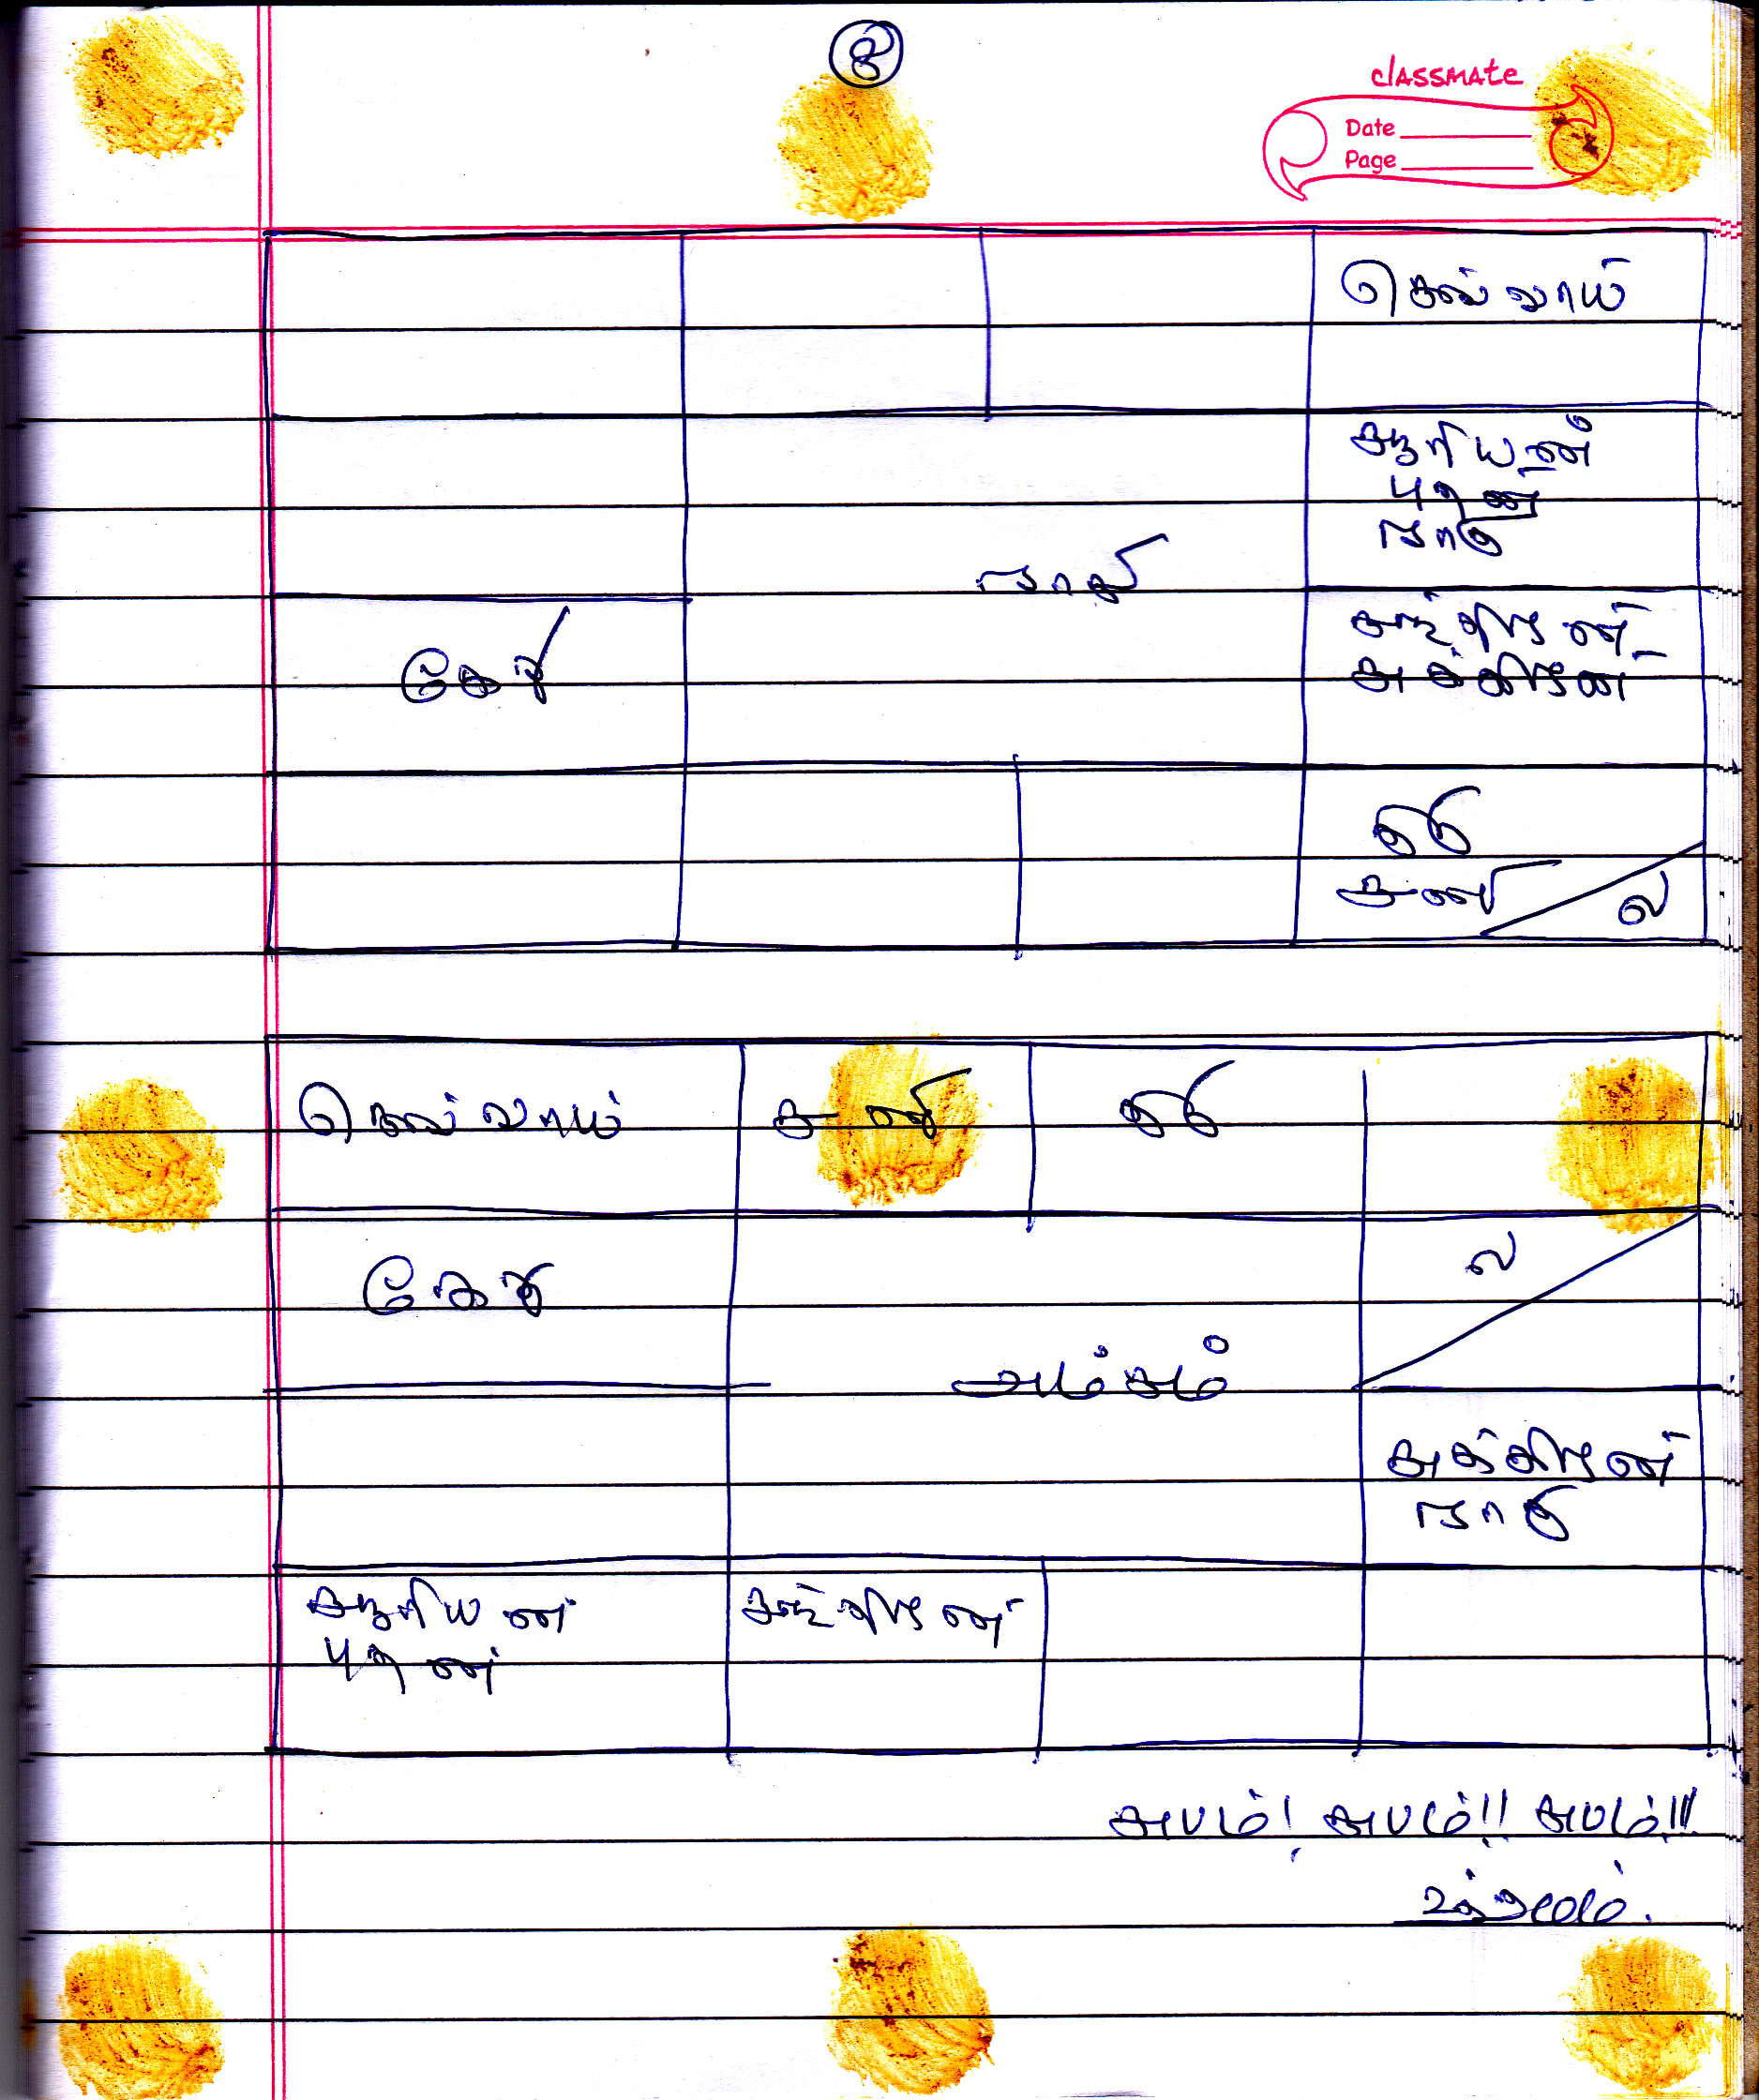 8
classmate
Date
Page
செவ்வாய்
சூரியன்
புதன்
ராகு
ராசி
சந்திரன்
சுக்கிரன்
கேது
குரு
சனி
ல
செவ்வாய் சனி குரு
கேது
ல
அம்சம்
சுக்கிரன்
ராகு
சூரியன் சந்திரன்
புதன்
சுபம்! சுபம்!! சுபம்!!!